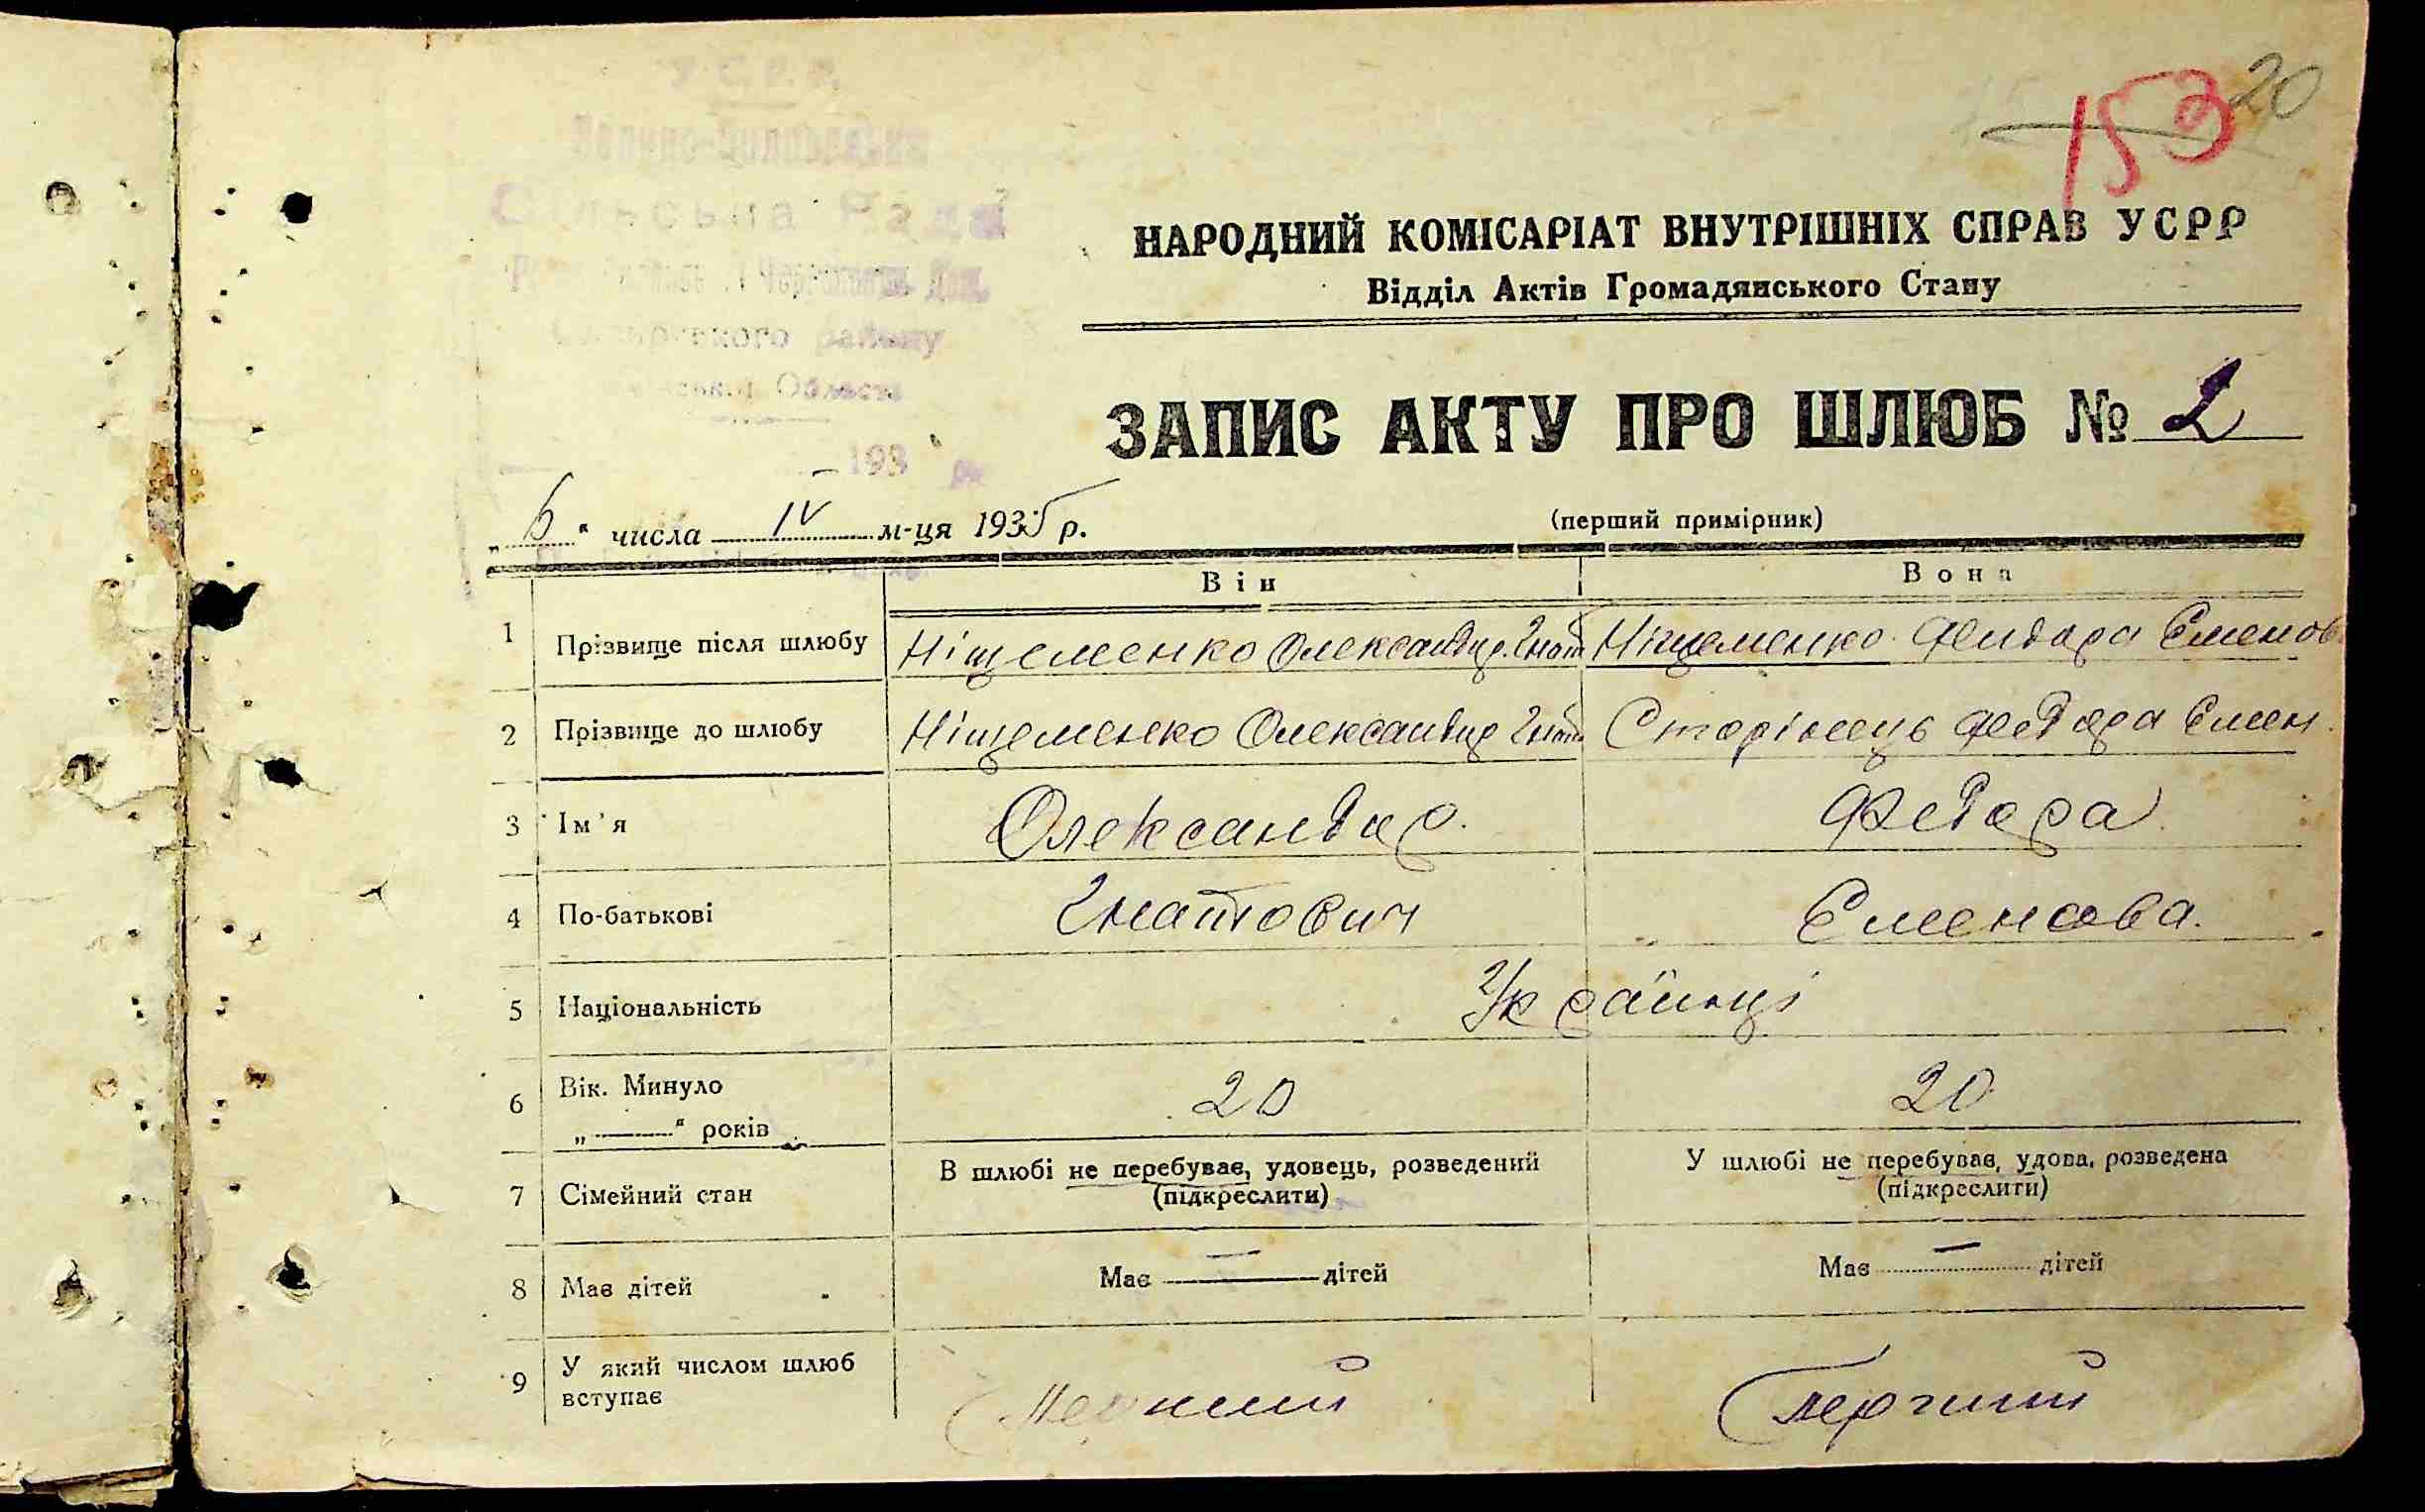 20
153
У.С.Р.Р.
Сільська Рада
району
Області
193
НАРОДНИЙ КОМІСАРІАТ ВНУТРІШНІХ СПРАВ УСРР
Відділ Актів Громадянського Стану
ЗАПИС АКТУ ПРО ШЛЮБ № 2
„6" числа IV м-ця 1935 р.
(перший примірник)
Він Вона
1 Прізвище після шлюбу Ніщеменко Олександр Гнат Ніщеменко Федора Єменов
2 Прізвище до шлюбу Ніщеменко Олександр Гнат Сторінець Федора Ємен.
3 Ім'я Олександр. Федора
4 По-батькові Гнатович Єменова.
5 Національність Українці
6 Вік. Минуло 20 20
„ " років
7 Сімейний стан В шлюбі не перебуває, удовець, розведений У шлюбі не перебуває, удова, розведена
(підкреслити) (підкреслити)
8 Має дітей Має — дітей Має — дітей
9 У який числом шлюб
вступає
Перший Перший